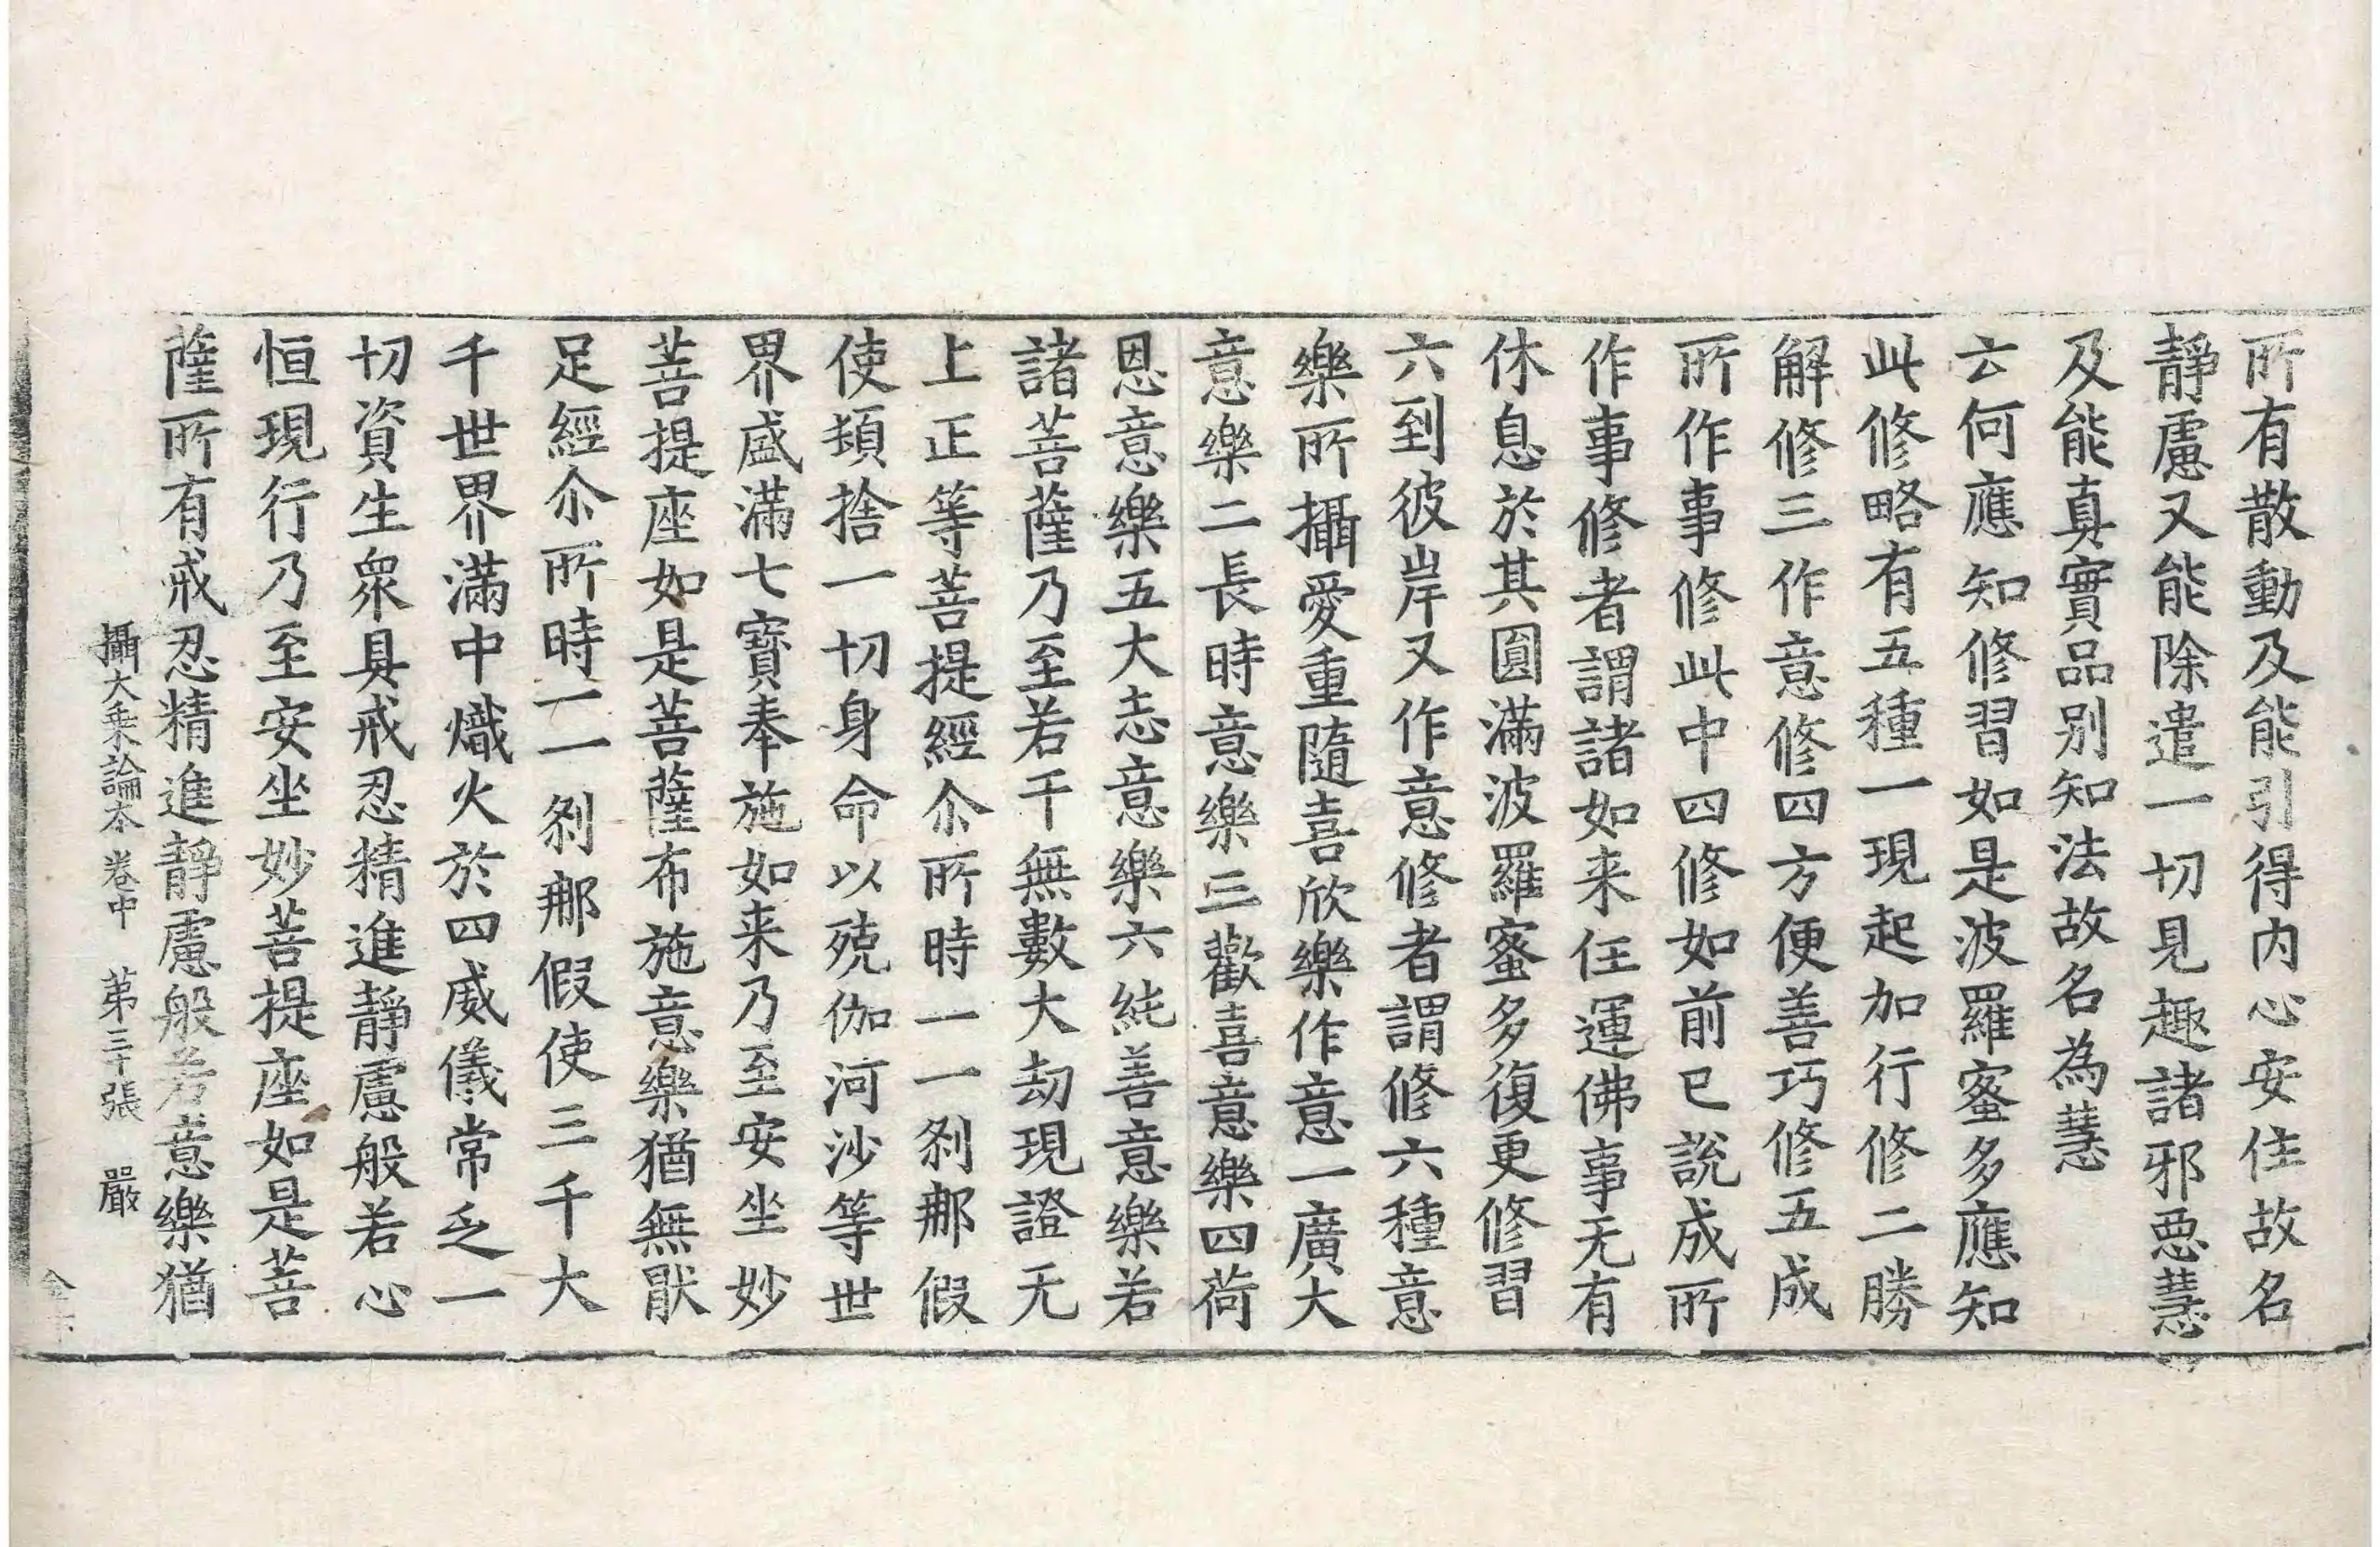 所有散動及能引得内心安住故名
靜慮又能除遣一切見趣諸邪惡慧
及能真實品別知法故名為慧
云何應知修習如是波羅蜜多應知
此修略有五種一現起加行修二勝
解修三作意修四方便善巧修五成
所作事修此中四修如前已說成所
作事修者謂諸如来任運佛事无有
休息於其圓滿波羅蜜多復更修習
六到彼岸又作意修者謂修六種意
樂所攝愛重隨喜欣樂作意一廣大
意樂二長時意樂三歡喜意樂四荷
恩意樂五大志意樂六純善意樂若
諸菩薩乃至若干無數大劫現證无
上正等菩提經尒所時一一剎那假
使頓捨一切身命以殑伽河沙等世
界盛滿七寶奉施如来乃至安坐妙
菩提座如是菩薩布施意樂猶無猒
足經尒所時一一剎那假使三千大
千世界滿中熾火於四威儀常乏一
切資生衆具戒忍精進靜慮般若心
恒現行乃至安坐妙菩提座如是菩
薩所有戒忍精進靜慮般若意樂猶
攝大乘論本 卷中 第三十張 嚴